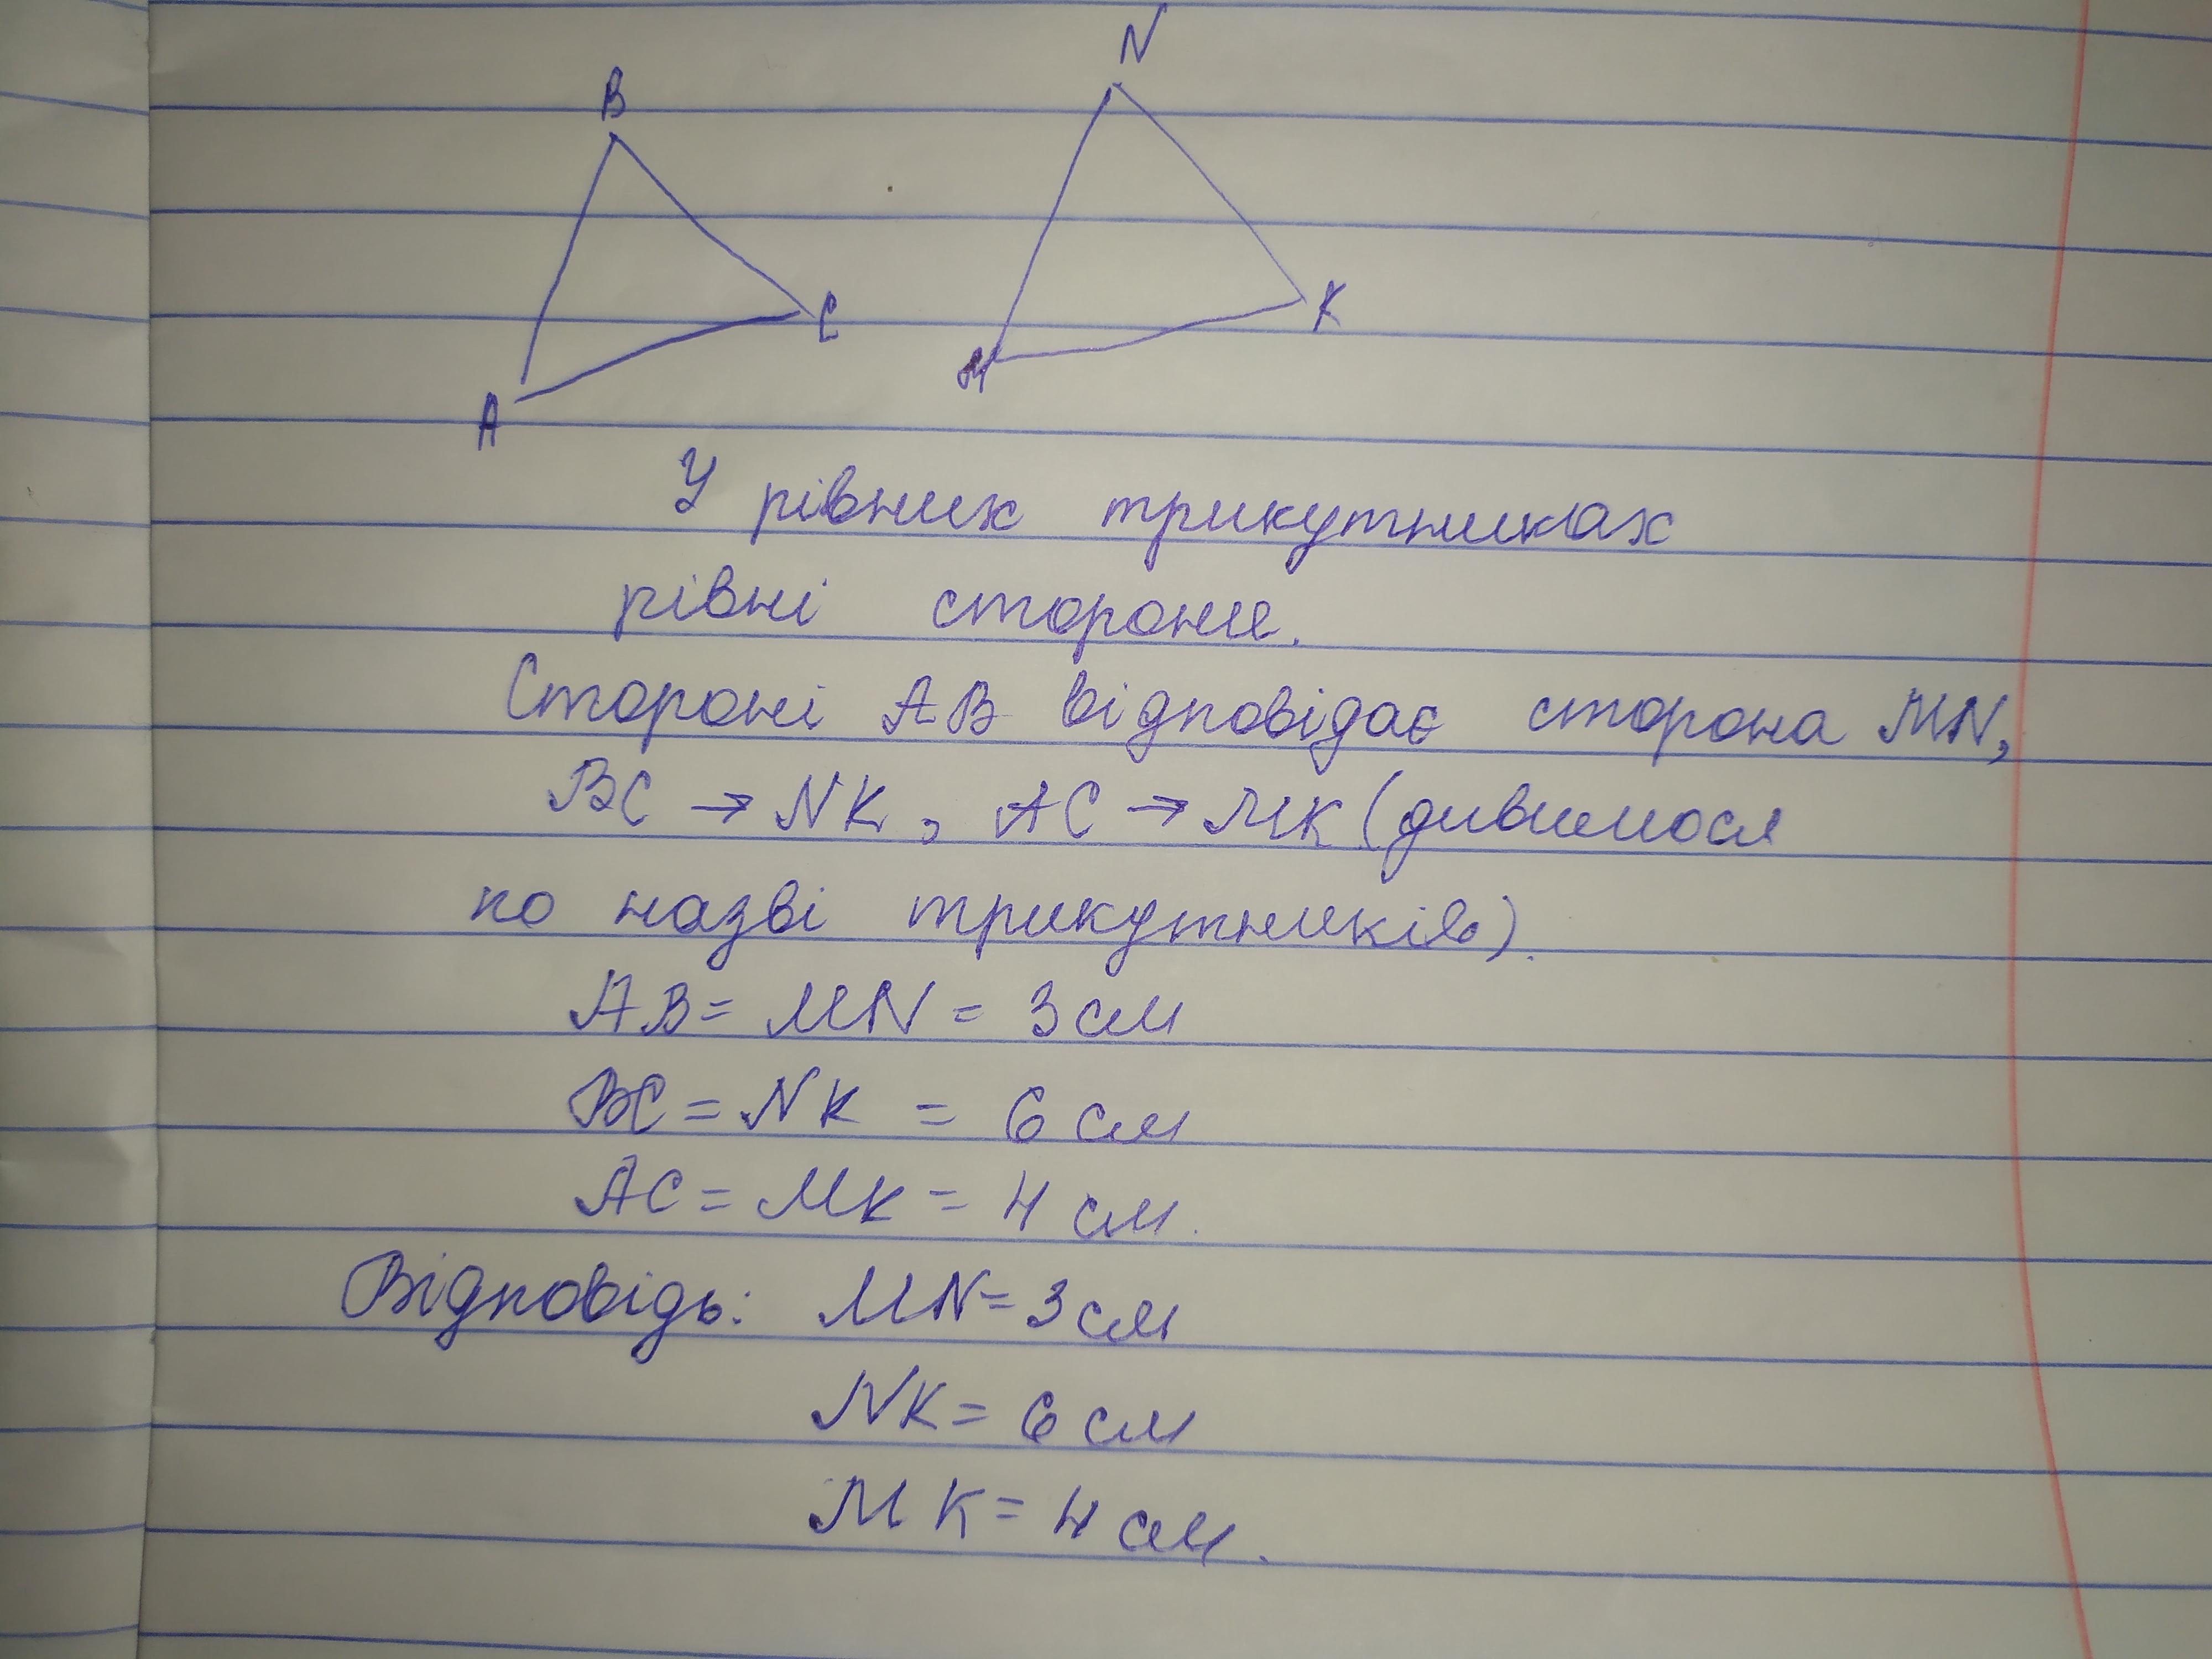 N
B
C
K
M
A
У рівних трикутниках
рівні сторони.
Стороні AB відповідає сторона MN,
BC → NK, AC → MK (дивимося
по назві трикутників).
AB = MN = 3 см
BC = NK = 6 см
AC = MK = 4 см.
Відповідь: MN = 3 см
NK = 6 см
MK = 4 см.